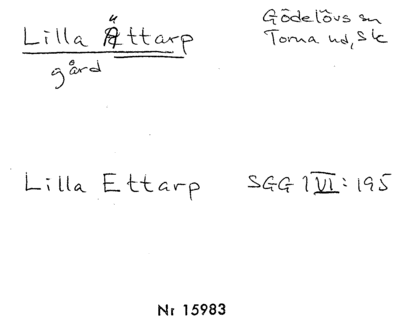 Lilla Ättarp
Gödelövs sn
gård
Torna hd, Sk
Lilla Ettarp SGG 1 VI: 195
Nr 15983